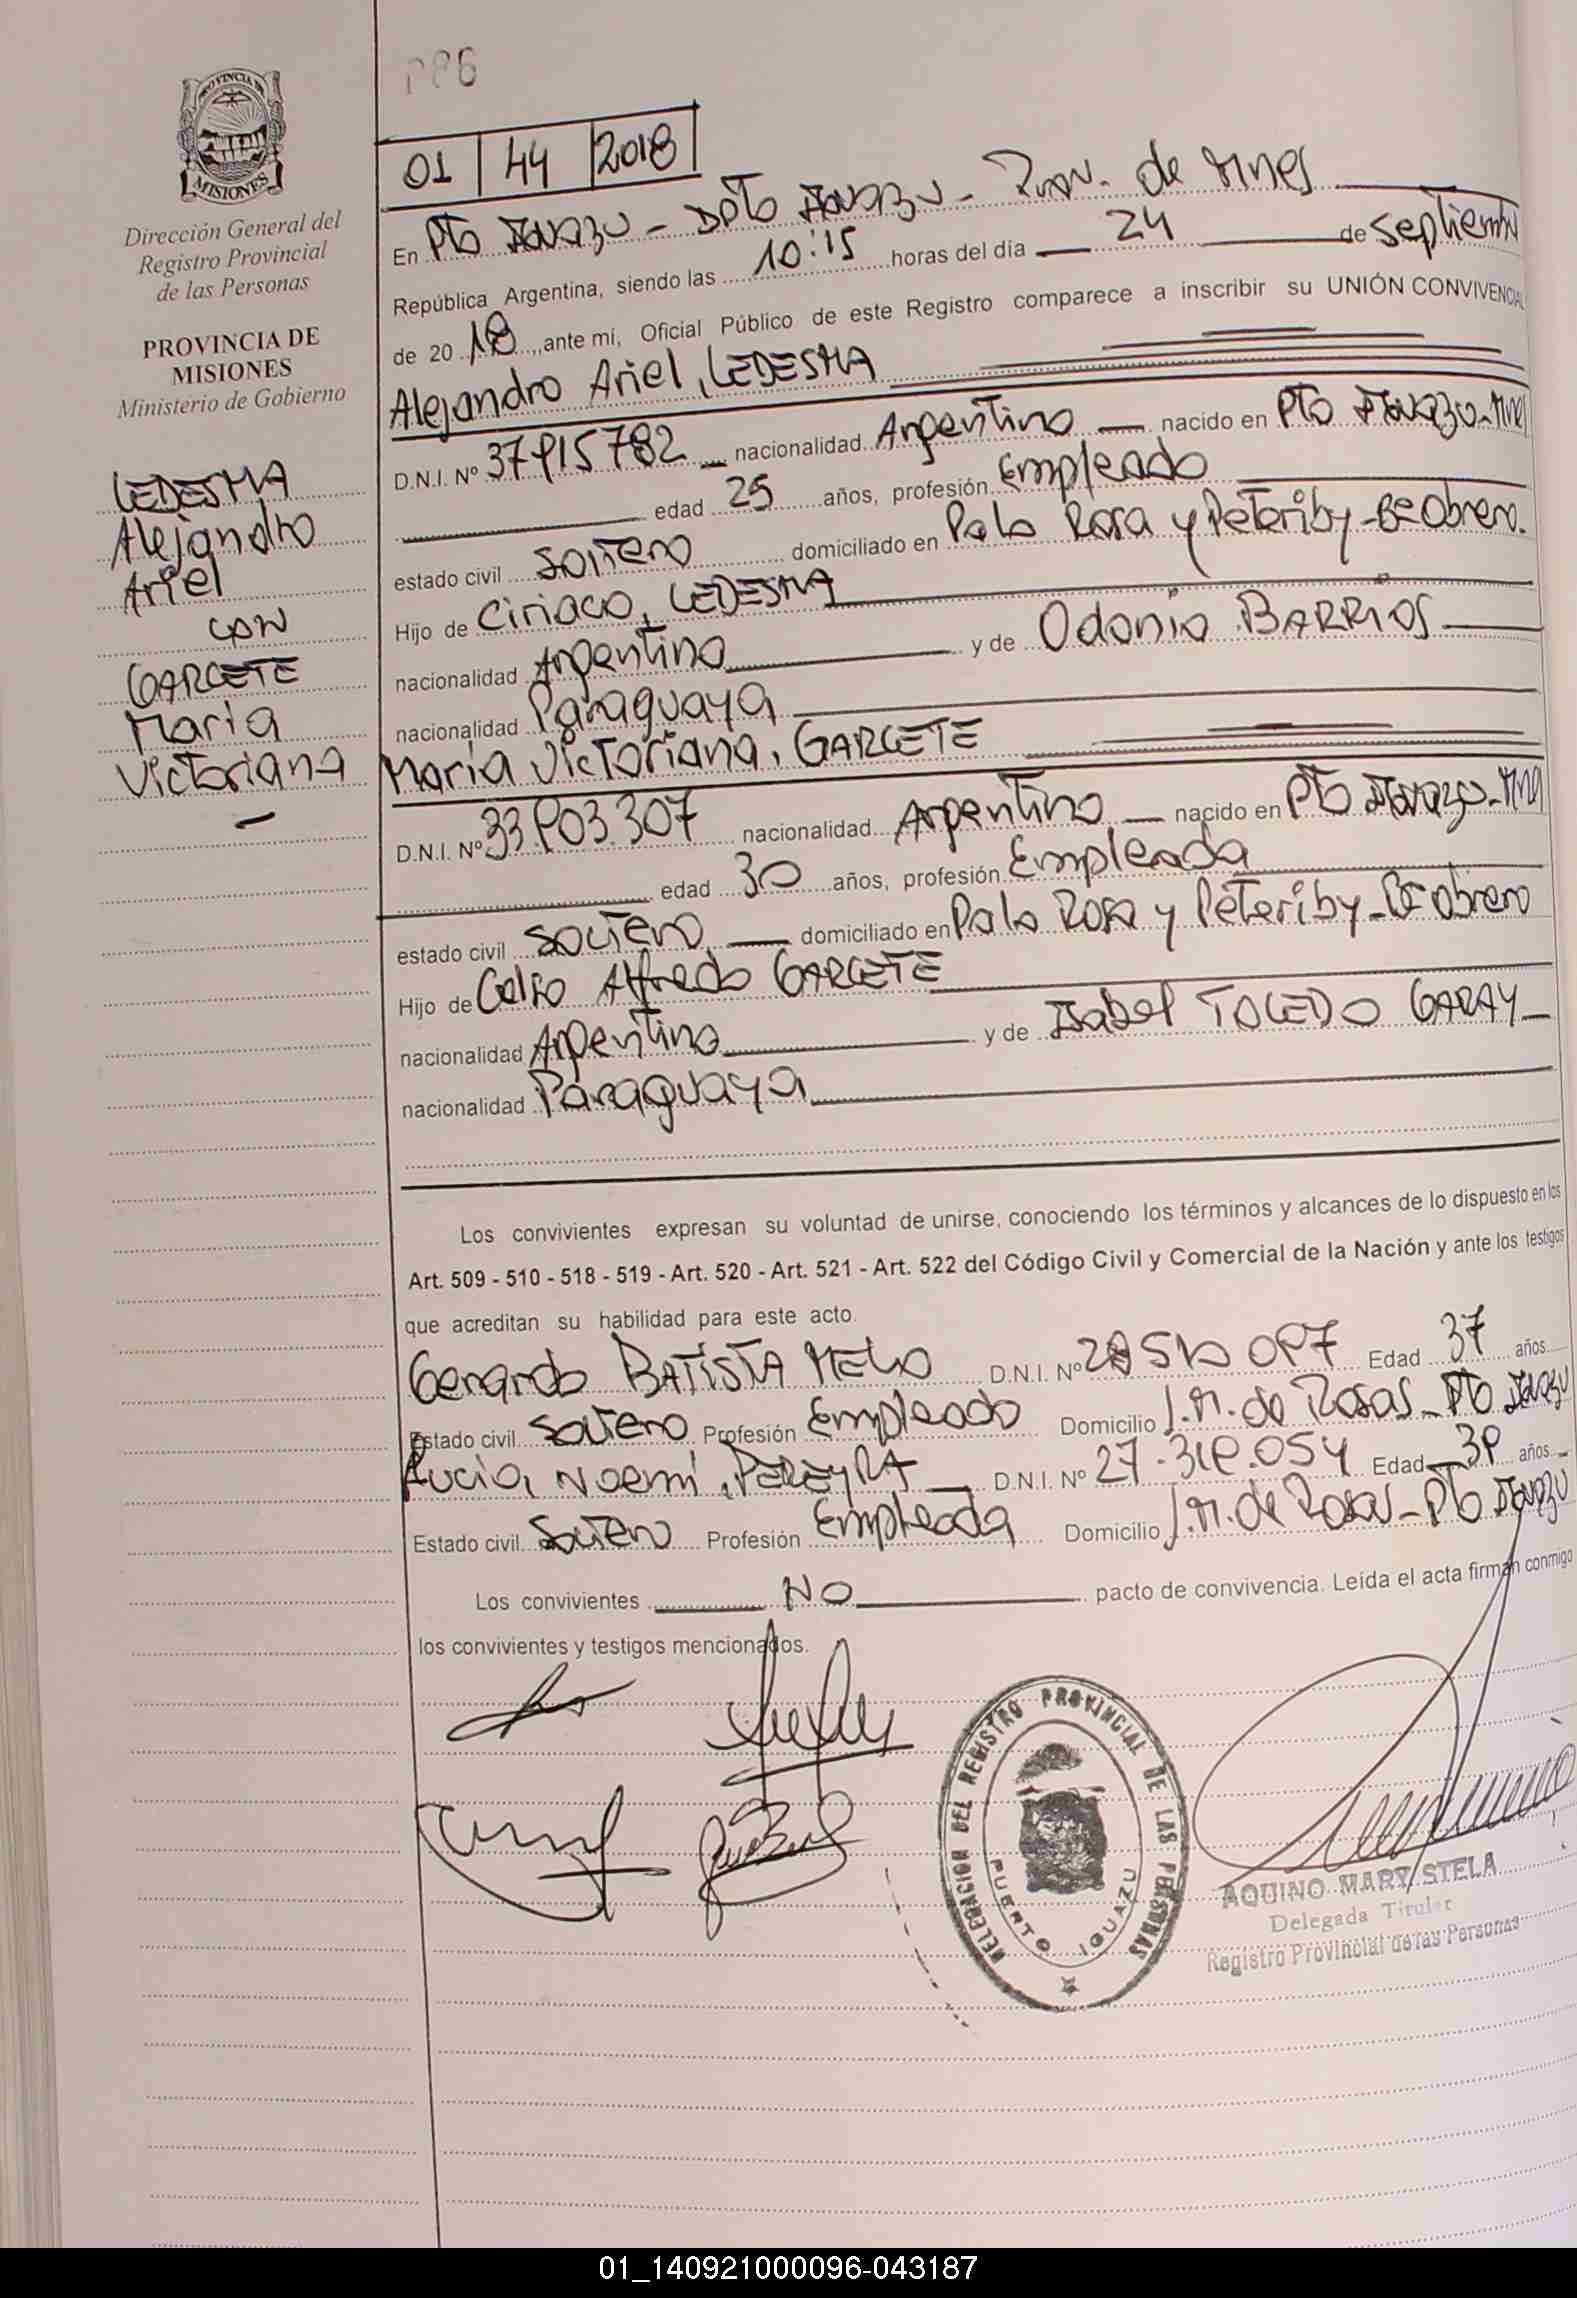 PROVINCIA DE
MISIONES
Dirección General del
Registro Provincial
de las Personas
PROVINCIA DE
MISIONES
Ministerio de Gobierno
LEDESMA
Alejandro
Ariel
con
GARCETE
Maria
Victoriana
01 | 44 | 2018
En Pto Iguazu - Dpto Iguazu - Prov. de Mnes
República Argentina, siendo las 10:15 horas del día 24 de septiembre
de 2018, ante mí, Oficial Público de este Registro comparece a inscribir su UNIÓN CONVIVENCIAL
Alejandro Ariel, LEDESMA
D.N.I. Nº 37915782 nacionalidad Argentino nacido en Pto Iguazu - Mnes
edad 25 años, profesión Empleado
estado civil soltero domiciliado en Palo Rosa y Peteriby - Bº Obrero.
Hijo de Ciriaco, LEDESMA
nacionalidad Argentino y de Odonia BARRIOS
nacionalidad Paraguaya
Maria Victoriana, GARCETE
D.N.I. Nº 33.903.307 nacionalidad Argentino nacido en Pto Iguazu - Mnes
edad 30 años, profesión Empleada
estado civil soltero domiciliado en Palo Rosa y Peteriby - Bº Obrero
Hijo de Celso Alfredo GARCETE
nacionalidad Argentino y de Isabel TOLEDO GARAY
nacionalidad Paraguaya
Los convivientes expresan su voluntad de unirse, conociendo los términos y alcances de lo dispuesto en los
Art. 509 - 510 - 518 - 519 - Art. 520 - Art. 521 - Art. 522 del Código Civil y Comercial de la Nación y ante los testigos
que acreditan su habilidad para este acto.
Gerardo BATISTA MELO D.N.I. Nº Edad 37 años
Estado civil soltero Profesión Empleado Domicilio J.M. de Rosas - Pto Iguazu
Lucia, Noemi, PEREYRA D.N.I. Nº 27.319.054 Edad 39 años
Estado civil soltero Profesión Empleada Domicilio J.M. de Rosas - Pto Iguazu
Los convivientes NO pacto de convivencia. Leída el acta firman conmigo
los convivientes y testigos mencionados.
DELEGACION DEL REGISTRO PROVINCIAL DE LAS PERSONAS
PUERTO IGUAZU
AQUINO MARY STELA
Delegada Titular
Registro Provincial de las Personas
01_140921000096-043187